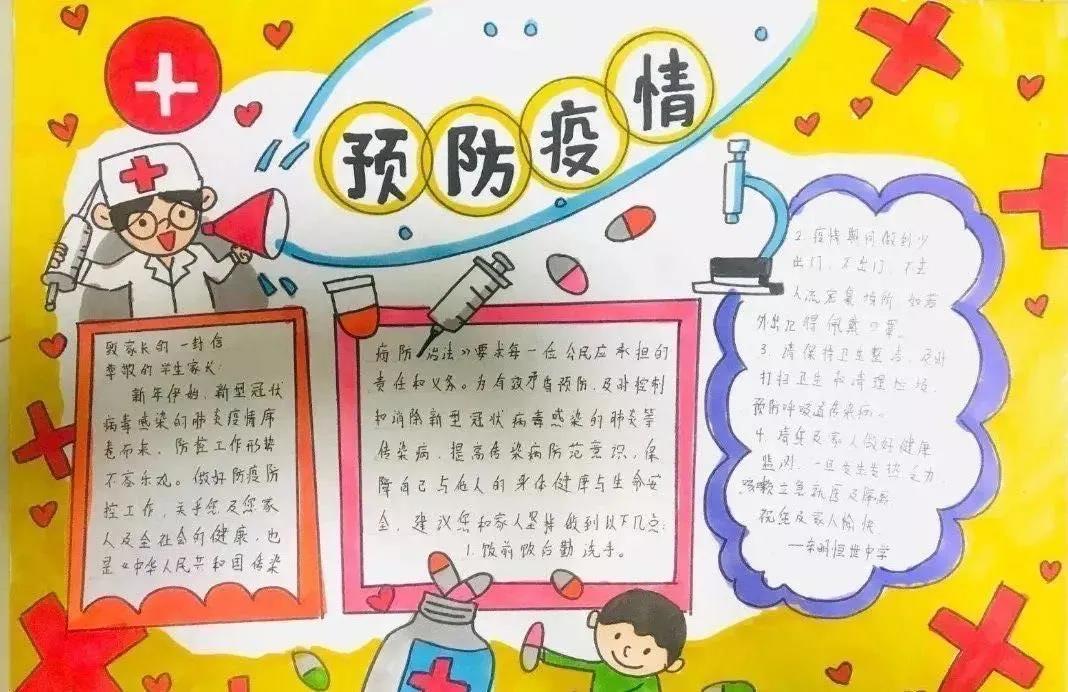 预防疫情
致家长的一封信
尊敬的学生家长:
新年伊始,新型冠状
病毒感染的肺炎疫情席
卷而来,防控工作形势
不容乐观。做好防疫防
控工作,关乎您及您家
人及全社会的健康,也
是《中华人民共和国传染
病防治法》要求每一位公民应承担的
责任和义务。为有效预防,及时控制
和消除新型冠状病毒感染的肺炎等
传染病,提高传染病防范意识,保
障自己与他人的身体健康与生命安
全,建议您和家人坚持做到以下几点:
1.饭前饭后勤洗手。
2.疫情期间做到少
出门,不出门,不去
人流密集场所,如若
外出记得佩戴口罩。
3.请保持卫生整洁,及时
打扫卫生和清理垃圾,
预防呼吸道传染病。
4.请您及家人做好健康
监测,一旦发生发热乏力,
立急就医及隔离
祝您及家人愉快
中学